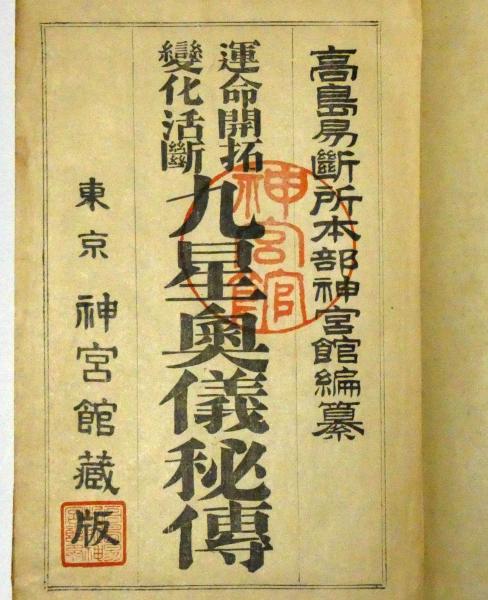 高島易斷所本部神宮館編纂
運命開拓
變化活斷
九星奧儀秘傳
東京 神宮館藏版
神宮館